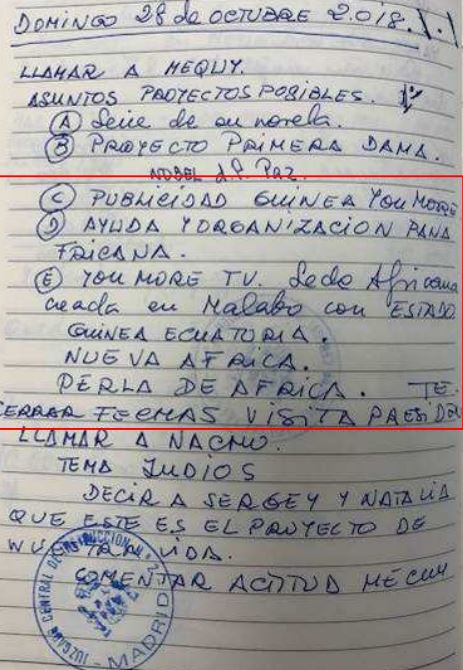 DOMINGO 28 de OCTUBRE 2.018.
LLAMAR A MEQUY.
ASUNTOS PROYECTOS POSIBLES. 1º
(A) Serie de su novela.
(B) PROYECTO PRIMERA DAMA.
NOBEL d.P. PAZ.
(C) PUBLICIDAD GUINEA YOU MORE
(D) AYUDA Y ORGANIZACION PANA
FRICANA.
(E) YOU MORE TV. Sede Africana
creada en Malabo con ESTADO
GUINEA ECUATORIA.
NUEVA AFRICA.
PERLA DE AFRICA. TE.
CERRAR FECHAS VISITA PRESIDEN
LLAMAR A NACHO.
TEMA JUDIOS
DECIR A SERGEY Y NATALIA
QUE ESTE ES EL PROYECTO DE
NUESTRA VIDA.
COMENTAR ACTITUD MECUY
JUZGADO CENTRAL DE INSTRUCCION Nº 2
MADRID